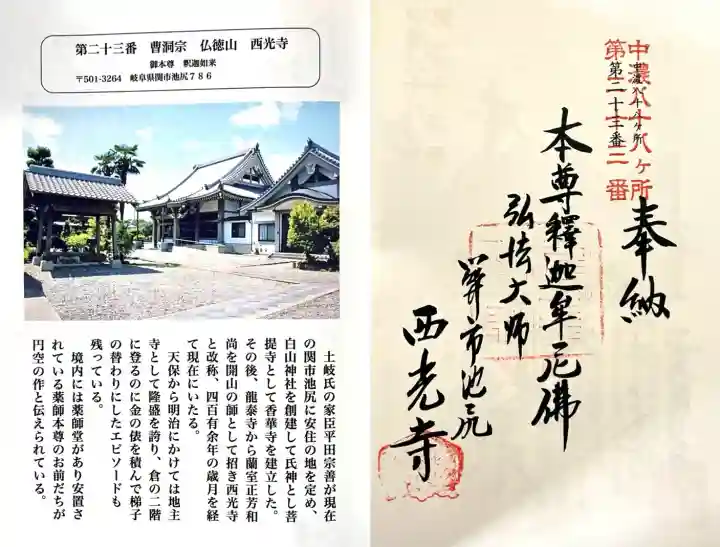 第二十三番　曹洞宗　仏徳山　西光寺
御本尊　釈迦如来
〒501-3264　岐阜県関市池尻７８６
土岐氏の家臣平田宗善が現在
の関市池尻に安住の地を定め、
白山神社を創建して氏神とし菩
提寺として香華寺を建立した。
その後、龍泰寺から蘭室正芳和
尚を開山の師として招き西光寺
と改称、四百有余年の歳月を経
て現在にいたる。
天保から明治にかけては地主
寺として隆盛を誇り、倉の二階
に登るのに金の俵を積んで梯子
の替わりにしたエピソードも
残っている。
境内には薬師堂があり安置さ
れている薬師本尊のお前だちが
円空の作と伝えられている。
中濃八十八ヶ所
第二十三番
中濃八十八ヶ所
第二十三番
奉納
本尊釋迦牟尼佛
弘法大師
関市池尻
西光寺